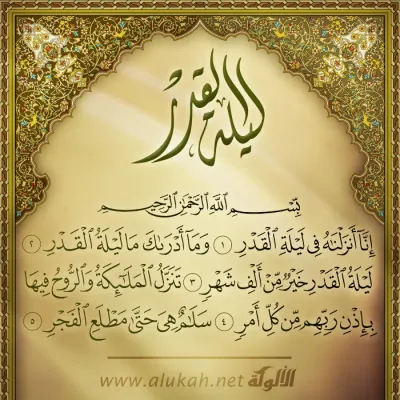 ليلة القدر
بِسْمِ اللَّهِ الرَّحْمَٰنِ الرَّحِيمِ
إِنَّا أَنزَلْنَاهُ فِي لَيْلَةِ الْقَدْرِ ۝١ وَمَا أَدْرَاكَ مَا لَيْلَةُ الْقَدْرِ ۝٢
لَيْلَةُ الْقَدْرِ خَيْرٌ مِّنْ أَلْفِ شَهْرٍ ۝٣ تَنَزَّلُ الْمَلَائِكَةُ وَالرُّوحُ فِيهَا
بِإِذْنِ رَبِّهِم مِّن كُلِّ أَمْرٍ ۝٤ سَلَامٌ هِيَ حَتَّىٰ مَطْلَعِ الْفَجْرِ ۝٥
www.alukah.net الألوكة